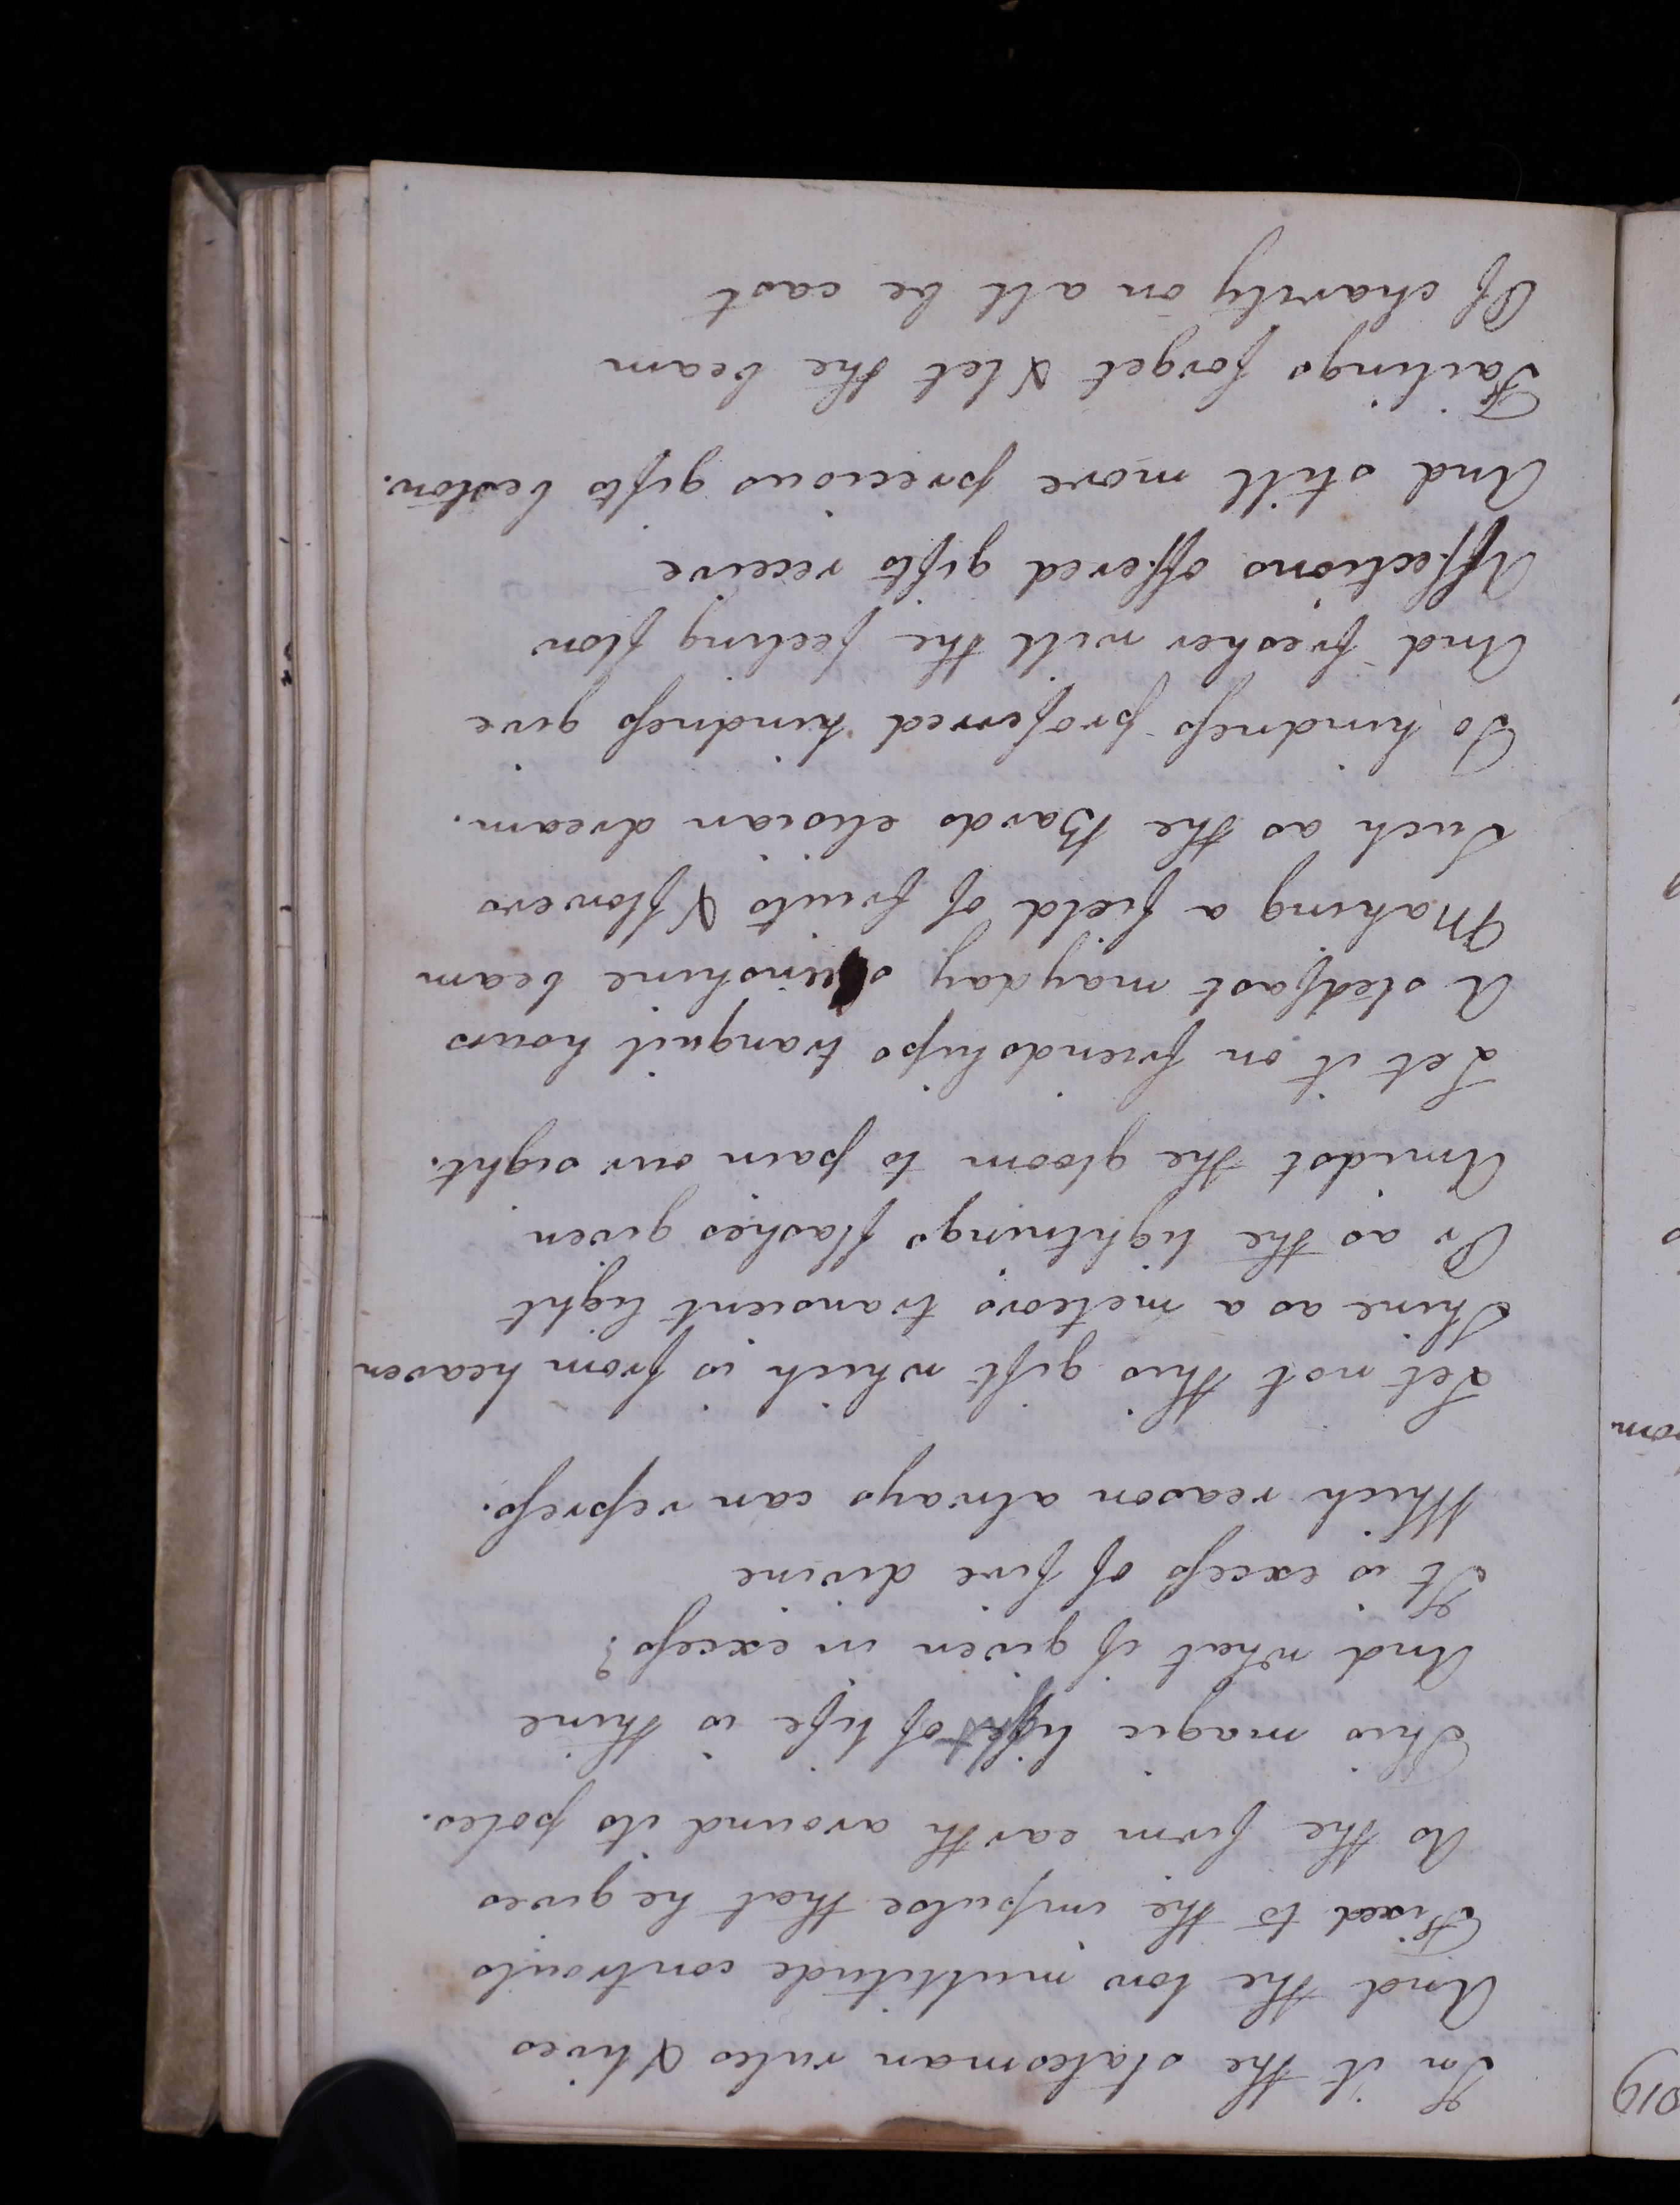 In it the statesman rules & lives
And the low multitude controuls
Fixed to the impulse that he gives
As the firm earth around its poles.
This magic light of life is thine
And what if given in excess?
It is excess of fire divine
Which reason always can repress.
Let not this gift which is from heaven
Shine as a meteors transient light
Or as the lightnings flashes given
Amidst the gloom to pain our sight.
Let it on friendships tranquil hours
A stedfast mayday sunshine beam
Making a field of fruits & flowers
Such as the Bards elisian dream.
To kindness proferred kindness give
And fresher will the feeling flow
Affections offered gifts receive
And still more precious gifts bestow.
Failings forget & let the beam
Of charity on all be cast